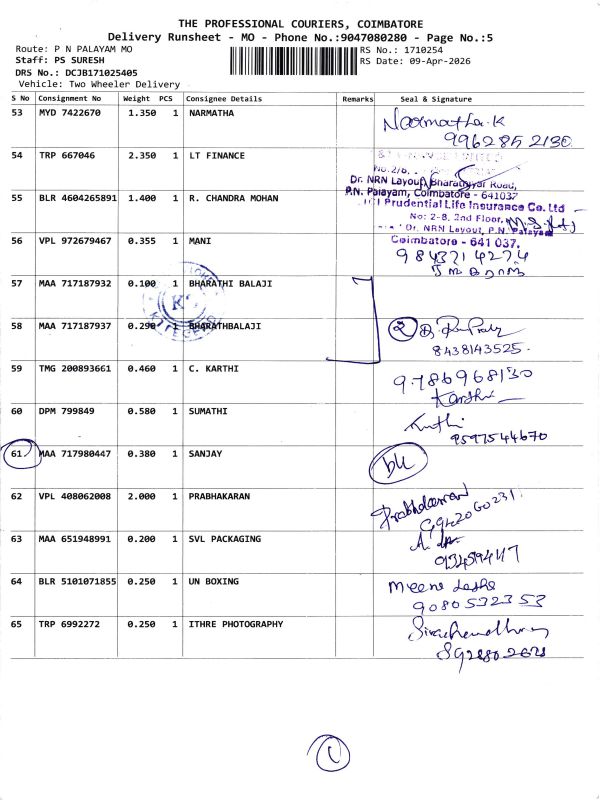 THE PROFESSIONAL COURIERS, COIMBATORE
Delivery Runsheet - MO - Phone No.:9047080280 - Page No.:5
Route: P N PALAYAM MO
RS No.: 1710254
Staff: PS SURESH
RS Date: 09-Apr-2026
DRS No.: DCJB171025405
Vehicle: Two Wheeler Delivery
S No Consignment No Weight PCS Consignee Details Remarks Seal & Signature
53 MYD 7422670 1.350 1 NARMATHA Narmatha.K
9962852130
54 TRP 667046 2.350 1 LT FINANCE
No.2/6,
Dr. NRN Layout, Bharathiyar Road,
P.N. Palayam, Coimbatore - 641037
55 BLR 4604265891 1.400 1 R. CHANDRA MOHAN
Prudential Life Insurance Co. Ltd
No: 2-8, 2nd Floor,
Dr. NRN Layout, P.N. Palayam
Coimbatore - 641 037.
56 VPL 972679467 0.355 1 MANI
9843214274
57 MAA 717187932 0.100 1 BHARATHI BALAJI
58 MAA 717187937 0.290 1 BHARATHBALAJI 2
8438143525.
59 TMG 200893661 0.460 1 C. KARTHI 9786968130
Karthi
60 DPM 799849 0.580 1 SUMATHI
9597544670
61 MAA 717980447 0.380 1 SANJAY
62 VPL 408062008 2.000 1 PRABHAKARAN Prabhakaran
63 MAA 651948991 0.200 1 SVL PACKAGING
64 BLR 5101071855 0.250 1 UN BOXING
9080532353
65 TRP 6992272 0.250 1 ITHRE PHOTOGRAPHY
1